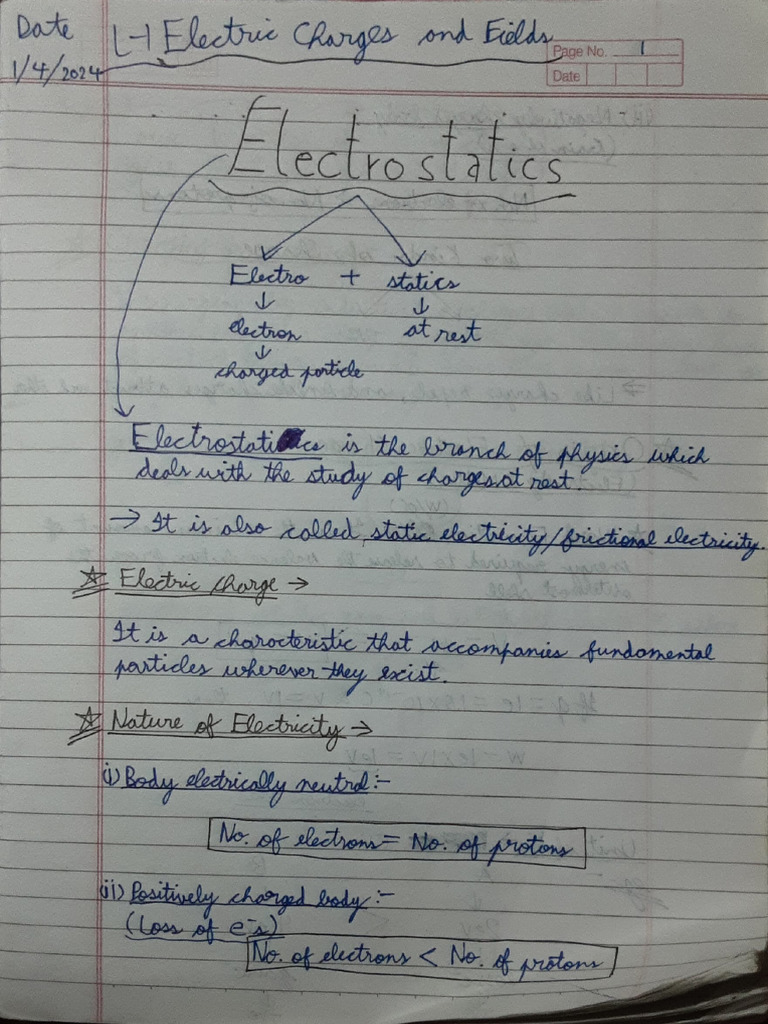 Date
1/4/2024
L-1 Electric Charges and Fields
Page No. 1
Date
Electrostatics
Electro + statics
↓ ↓
electron at rest
↓
charged particle
Electrostatics is the branch of physics which
deals with the study of charges at rest.
→ It is also called static electricity/frictional electricity.
☆ Electric charge →
It is a characteristic that accompanies fundamental
particles wherever they exist.
☆ Nature of Electricity →
i) Body electrically neutral:-
No. of electrons = No. of protons
ii) Positively charged body:-
(Loss of e⁻s)
No. of electrons < No. of protons